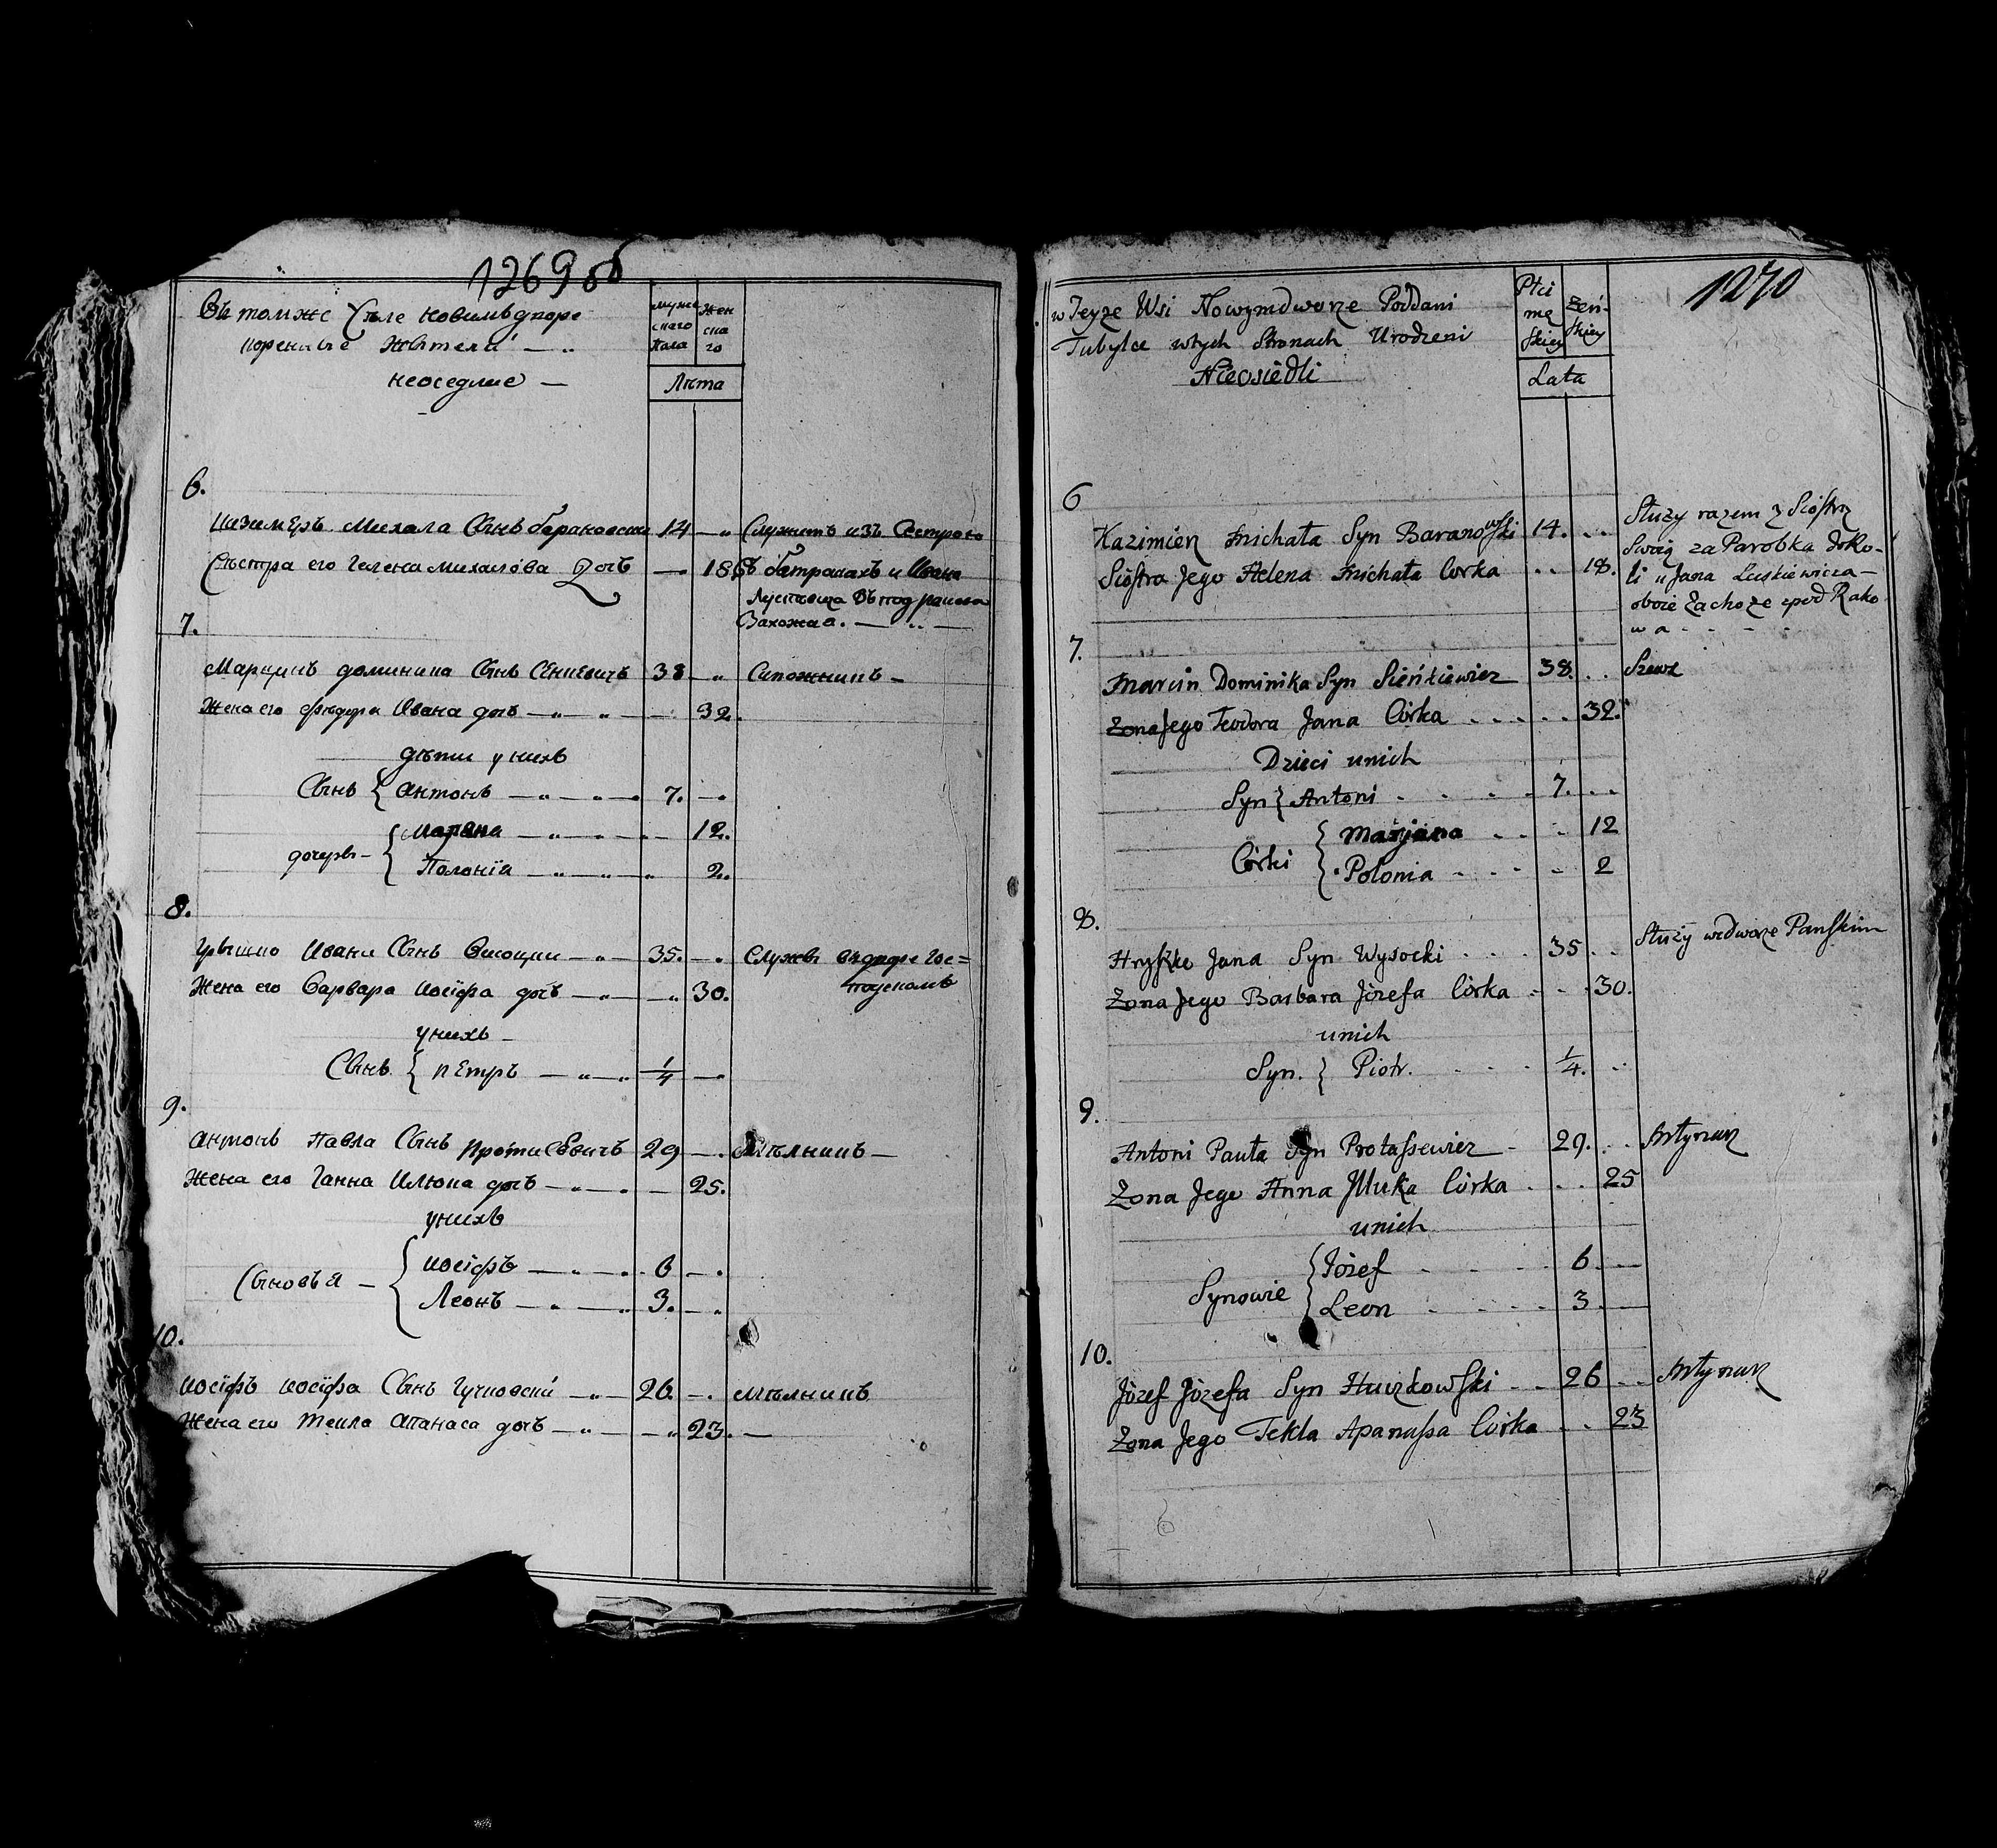 1269 об
Въ томже Селе Новимъдворе
коренные жители
неоседлые
муже
скаго
пола
жен
ска
го
Лѣта
6.
Казимеръ Михала Сынъ Барановски 14
Служитъ изъ Сестрою
Сѣстра его Гелена Михалова Дочъ 18
въ батракахъ и Ивана
Захожая.
7.
Марцинъ доминика Сынъ Сенкевичъ 38
Сапожникъ
Жена его Ѳѣдора Ивана дочъ 32.
дѣти у нихъ
Сынъ { антонъ 7.
дочеры { Маряна 12.
Полонія 2.
8.
Грышко Ивана Сынъ Висоцки 35.
Служы въ дворе Гос=
подскомъ
Жена его Варвара Іосіфа дочъ 30.
у нихъ
Сынъ { пЕтръ 1/4
9.
антонъ Павла Сынъ ПротасЕвичъ 29
Мѣлникъ
Жена его Ганна Илюка дочъ 25.
у нихъ
Сыновья { иосіфъ 6
Леонъ 3.
10.
иосіфъ иосіфа Сынъ Гучковски 26
мѣлникъ
Жена его Текла Апанаса дочъ 23.
1270
w Teyże Wsi Nowymdworze Poddani
Tubylce wtych Stronach Urodzeni
Nieosiedli
Płci
mę
skiey
żeń-
skiey
Lata
6
Kazimierz Michała Syn Baranowski 14.
Służy razem z Siostrą
Swoią za Parobka doko-
Siostra Jego Helena Michała Corka 18.
li u Jana Luskiewicza
oboie Zachoże zpod Rako
wa
7.
Marcin Dominika Syn Sieńkiewicz 38.
Szewc
Żona Jego Teodora Jana Córka 32.
Dzieci unich
Syn { Antoni 7.
Córki { Marjana 12
Polonia 2
8.
Hryszko Jana Syn Wysocki 35
Służy wedworze Panskim
Żona Jego Barbara Józefa Córka 30.
unich
Syn. { Piotr. 1/4.
9.
Antoni Pawła Syn Protassewicz 29.
Młynarz
Żona Jego Anna Jlluka Córka 25
unich
Synowie { Józef 6
Leon 3
10.
Józef Józefa Syn Huczkowski 26
Młynarz
Żona Jego Tekla Apanassa Córka 23